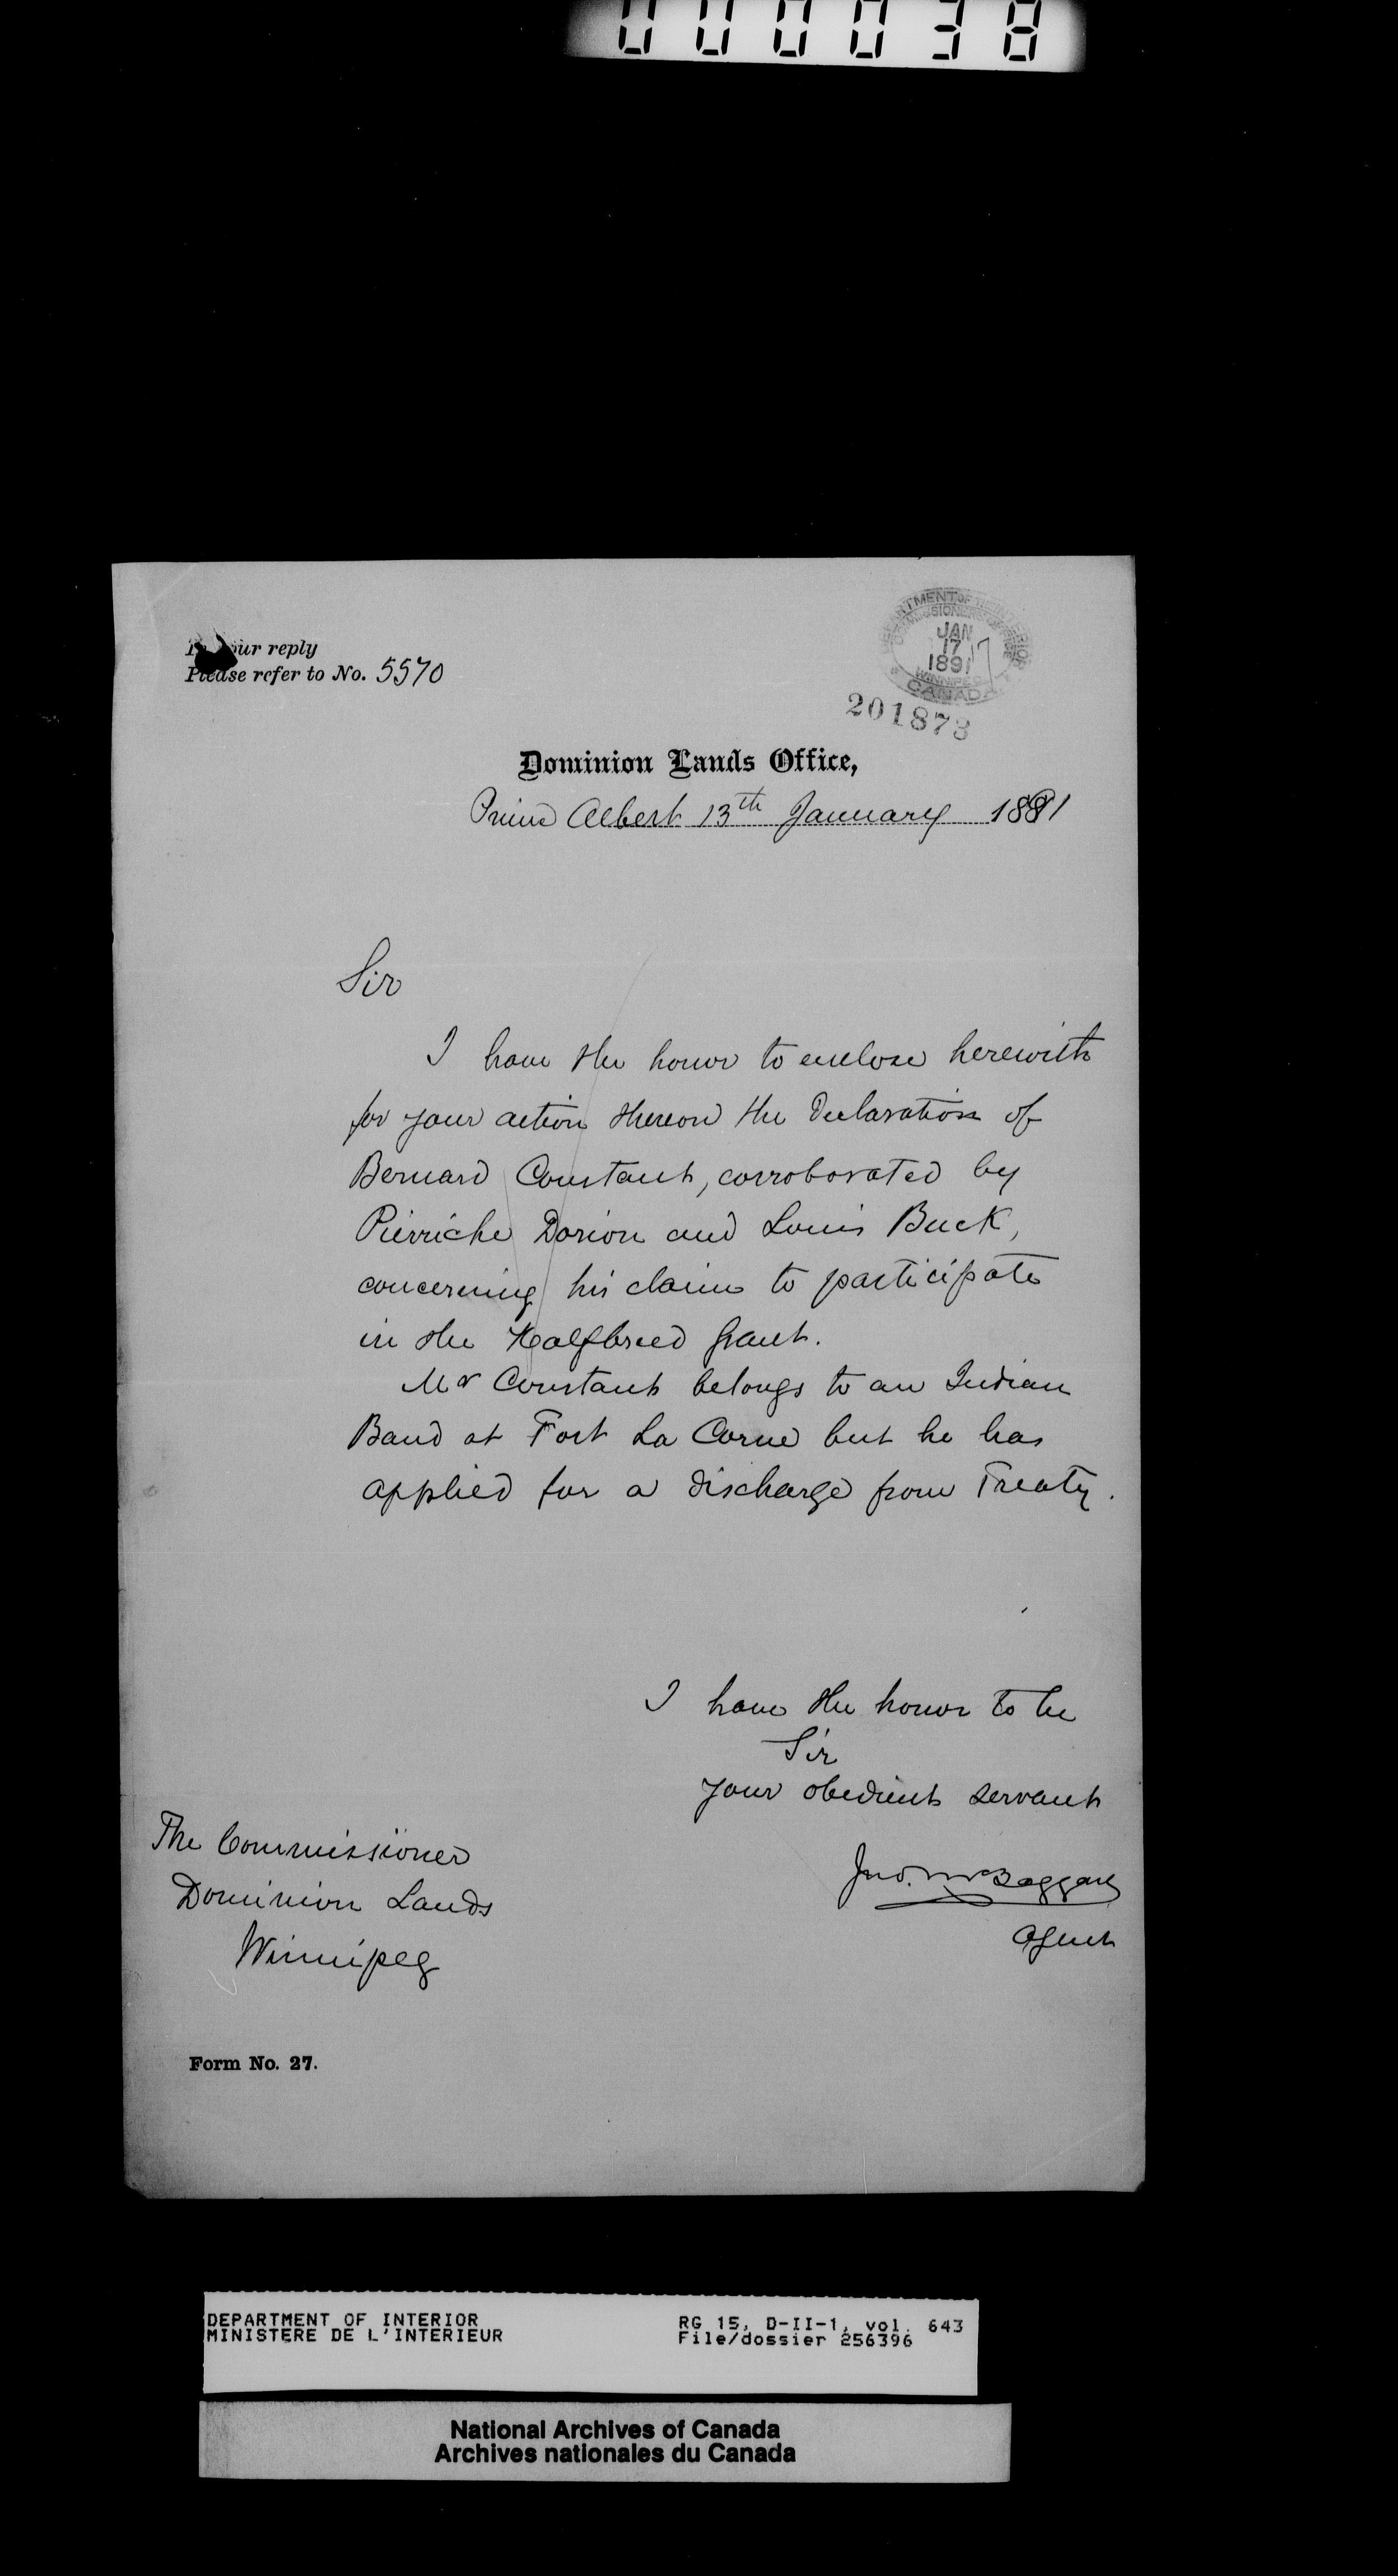 000038
In your reply
Please refer to No. 5570
JAN
17
1891
WINNIPEG
CANADA
201873
Dominion Lands Office,
Prince Albert 13th January 1891
Sir
I have the honor to enclose herewith
for your action thereon the declaration of
Bernard Constant, corroborated by
Pierriche Dorion and Louis Buck,
concerning his claim to participate
in the Halfbreed grant.
Mr Constant belongs to an Indian
Band at Fort La Corne but he has
applied for a discharge from Treaty.
I have the honor to be
Sir
your obedient servant
Jno. McTaggart
Agent
The Commissioner
Dominion Lands
Winnipeg
Form No. 27.
DEPARTMENT OF INTERIOR RG 15, D-II-1, vol. 643
MINISTERE DE L'INTERIEUR File/dossier 256396
National Archives of Canada
Archives nationales du Canada